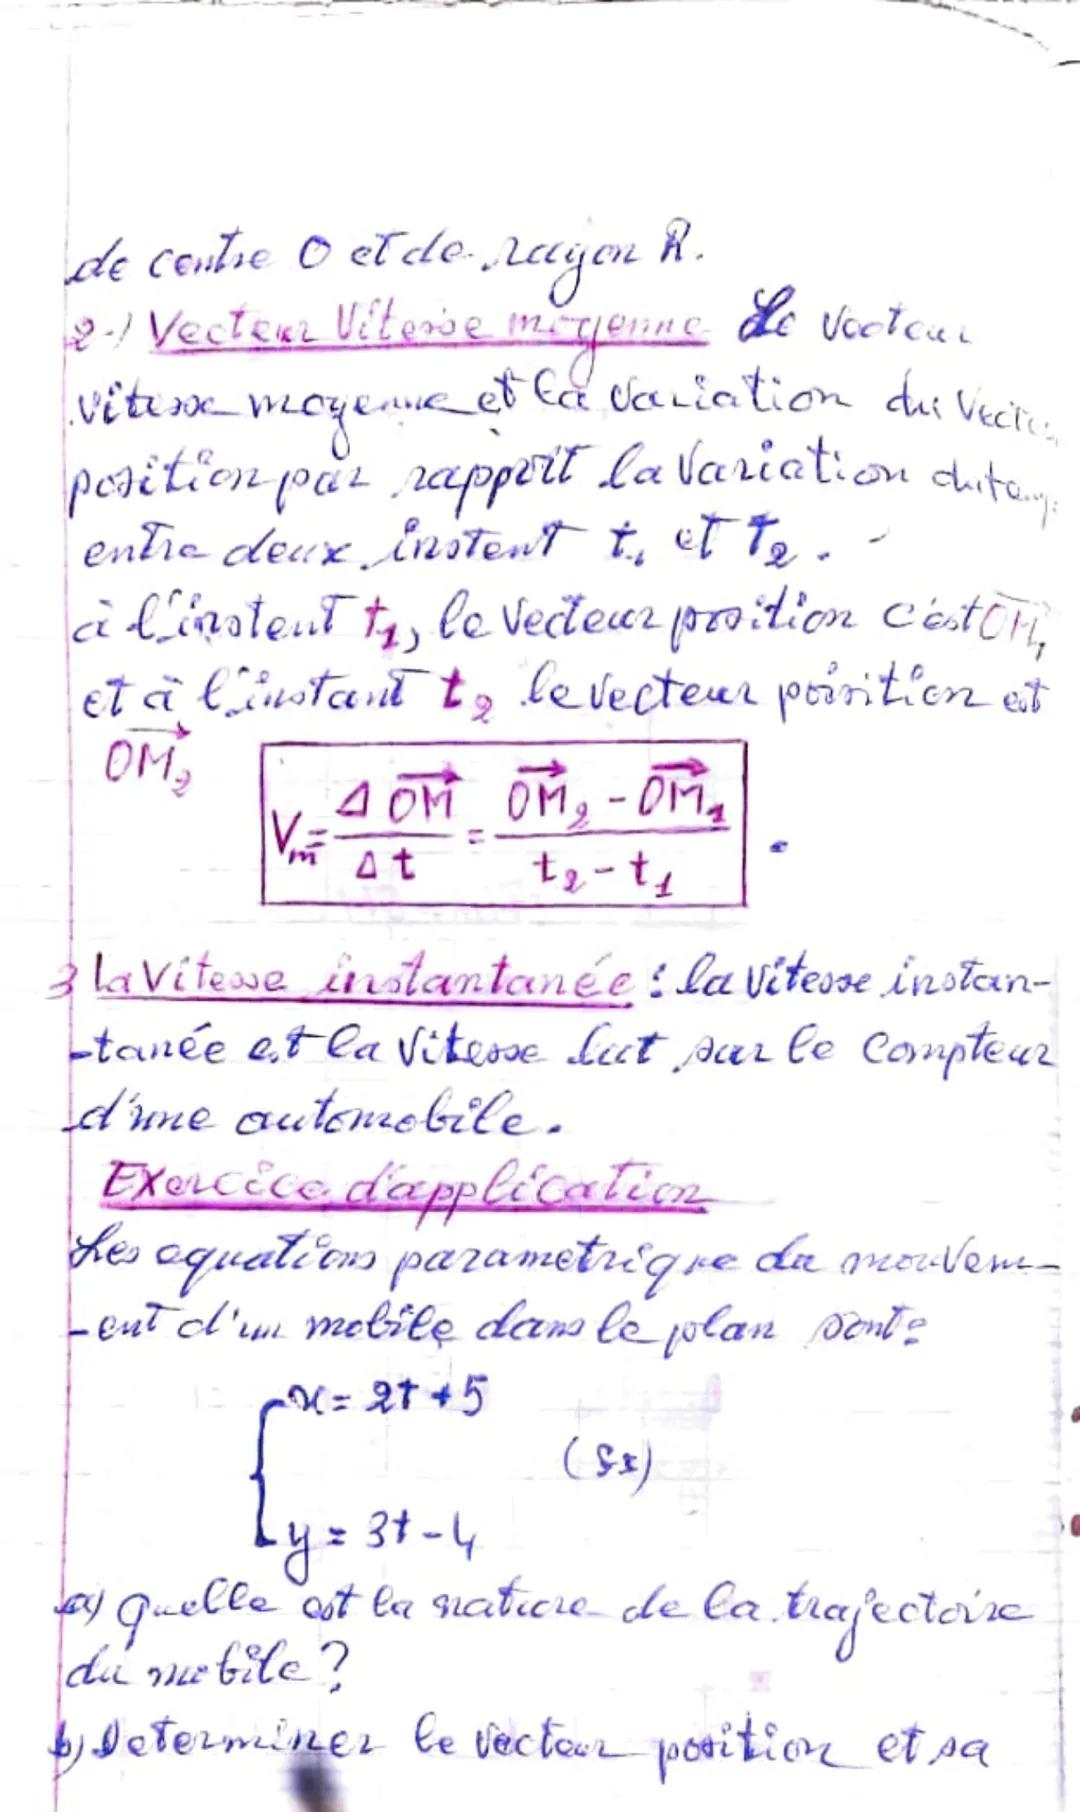 de centre O et de rayon R.
2-) Vecteur Vitesse moyenne Le vecteur
vitesse moyenne et la variation du Vecteu
position par rapport la variation du temps
entre deux instent t1 et t2.
à l'instent t1, le vecteur position c'est OM1
et à l'instant t2 le vecteur poisition est
OM2
Vm = Δ OM / Δt = OM2 - OM1 / t2 - t1
3 La Vitesse instantanée : la vitesse instan-
-tanée est la vitesse lut sur le compteur
d'une automobile.
Exercice d'application
Les equations parametrique du mouvem-
-ent d'un mobile dans le plan sont:
x = 2t + 5
y = 3t - 4
a) quelle est la nature de la trajectoire
du mobile ?
b) Determiner le vecteur position et sa